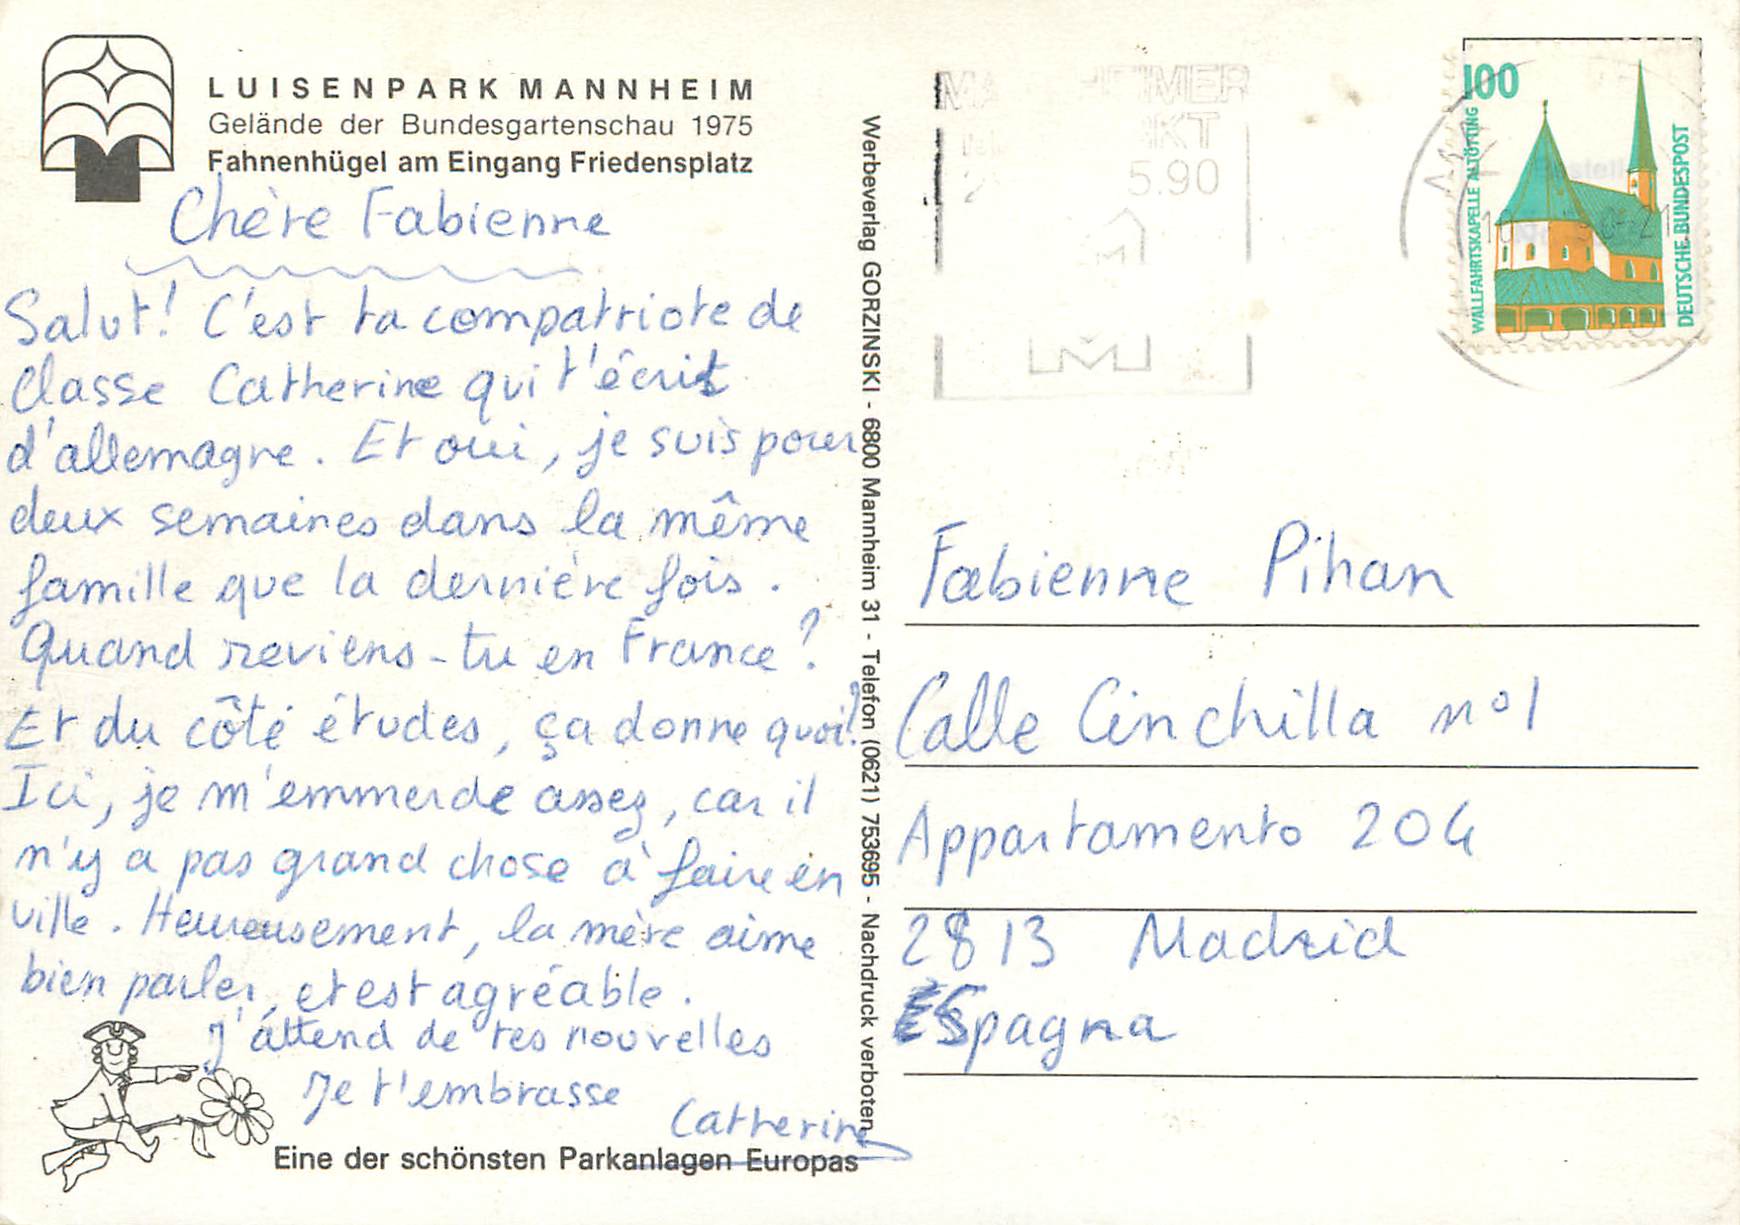 LUISENPARK MANNHEIM
Gelände der Bundesgartenschau 1975
Fahnenhügel am Eingang Friedensplatz
Chère Fabienne
Salut! C'est ta compatriote de
classe Catherine qui t'écrit
d'allemagne. Et oui, je suis pour
deux semaines dans la même
famille que la dernière fois.
Quand reviens-tu en France?
Et du côté études, ça donne quoi?
Ici, je m'emmerde assez, car il
n'y a pas grand chose à faire en
ville. Heureusement, la mère aime
bien parler, et est agréable.
J'attend de tes nouvelles
Je t'embrasse
Catherine
Eine der schönsten Parkanlagen Europas
Werbeverlag GORZINSKI - 6800 Mannheim 31 - Telefon (0621) 753695 - Nachdruck verboten
5.90
100
WALLFAHRTSKAPELLE ALTÖTTING
DEUTSCHE BUNDESPOST
Fabienne Pihan
Calle Cinchilla n°1
Appartamento 204
2813 Madrid
Espagna